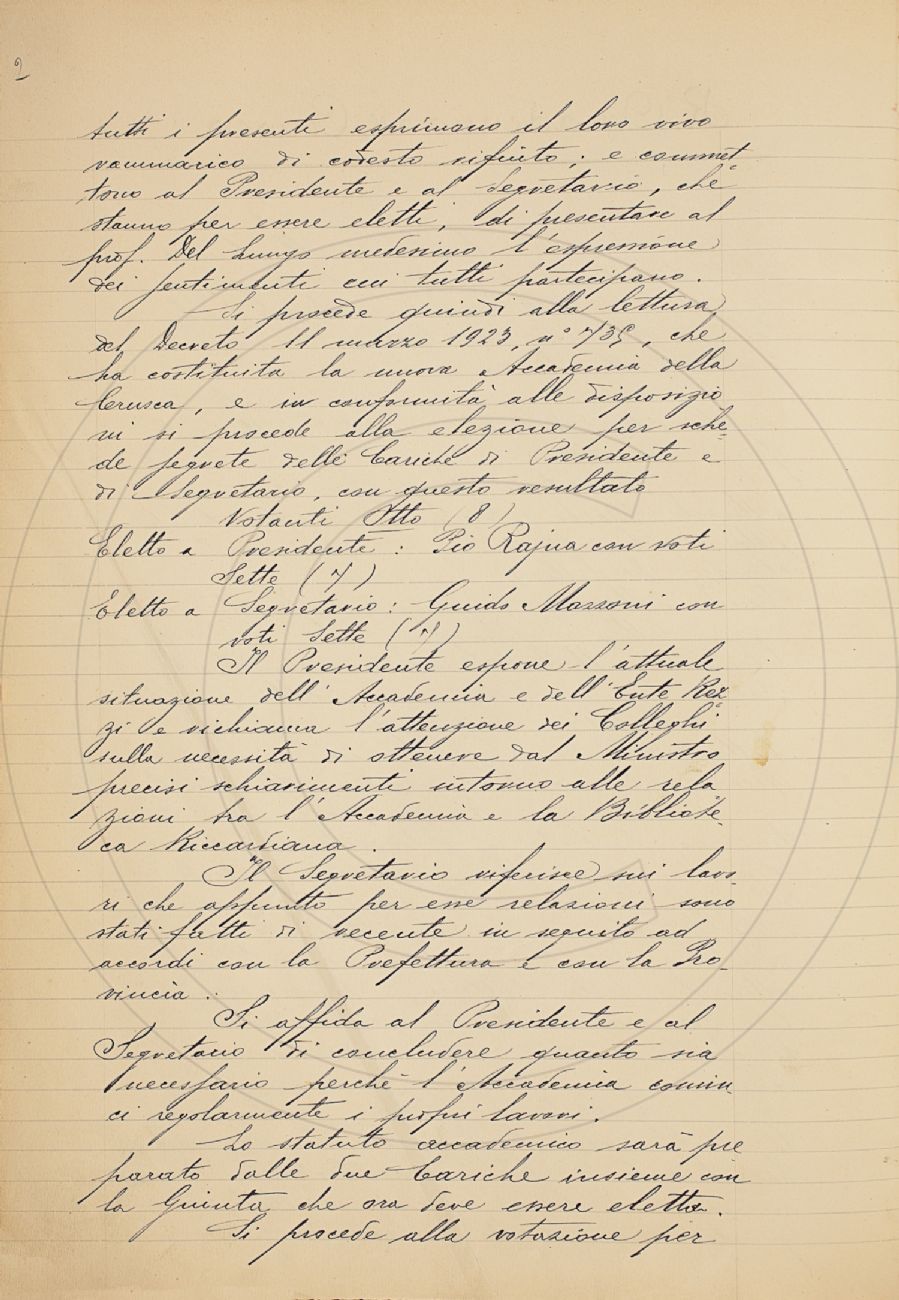 2
tutti i presenti esprimono il loro vivo
rammarico di codesto rifiuto; e commet-
tono al Presidente e al Segretario, che
stanno per essere eletti, di presentare al
prof. Del Lungo medesimo l'espressione
dei sentimenti cui tutti partecipano.
Si procede quindi alla lettura
del Decreto 11 marzo 1923, n° 735, che
ha costituita la nuova Accademia della
Crusca, e in conformità alle disposizio
ni si procede alla elezione per sche-
de segrete delle Cariche di Presidente e
di Segretario, con questo resultato
Votanti Otto (8)
Eletto a Presidente: Pio Rajna con voti
Sette (7)
Eletto a Segretario: Guido Mazzoni con
voti Sette (7)
Il Presidente espone l'attuale
situazione dell'Accademia e dell'Ente Rez-
zi e richiama l'attenzione dei Colleghi
sulla necessità di ottenere dal Ministro
precisi schiarimenti intorno alle rela
zioni tra l'Accademia e la Bibliote-
ca Riccardiana.
Il Segretario riferisce sui lavo
ri che appunto per esse relazioni sono
stati fatti di recente in seguito ad
accordi con la Prefettura e con la Pro-
vincia.
Si affida al Presidente e al
Segretario di concludere quanto sia
necessario perché l'Accademia comin-
ci regolarmente i propri lavori.
Lo statuto accademico sarà pre
parato dalle due Cariche insieme con
la Giunta che ora deve essere eletta.
Si procede alla votazione per